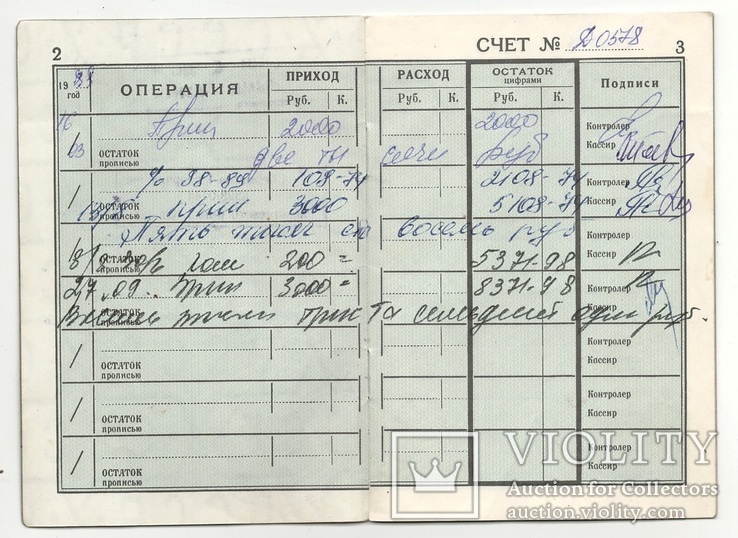 2
СЧЕТ № Д0578 3
19 год ОПЕРАЦИЯ ПРИХОД РАСХОД ОСТАТОК цифрами Подписи
Руб. К. Руб. К. Руб. К.
16 Прин 2000 2000 Контролер
03 ОСТАТОК прописью две ты сячи руб Кассир
% 38-89 108-74 2108-74 Контролер
ОСТАТОК прописью прин 3000 5108-74 Кассир
Пять тысяч сто восемь руб Контролер
200= 5371-98 Кассир
ОСТАТОК прописью
27.09. Прин 3000= 8371-98 Контролер
ОСТАТОК прописью Кассир
тысяч триста семьдесят один руб.
Контролер
ОСТАТОК прописью Кассир
Контролер
ОСТАТОК прописью Кассир
Контролер
ОСТАТОК прописью Кассир
VIOLITY
Auction for Collectors
auction.violity.com